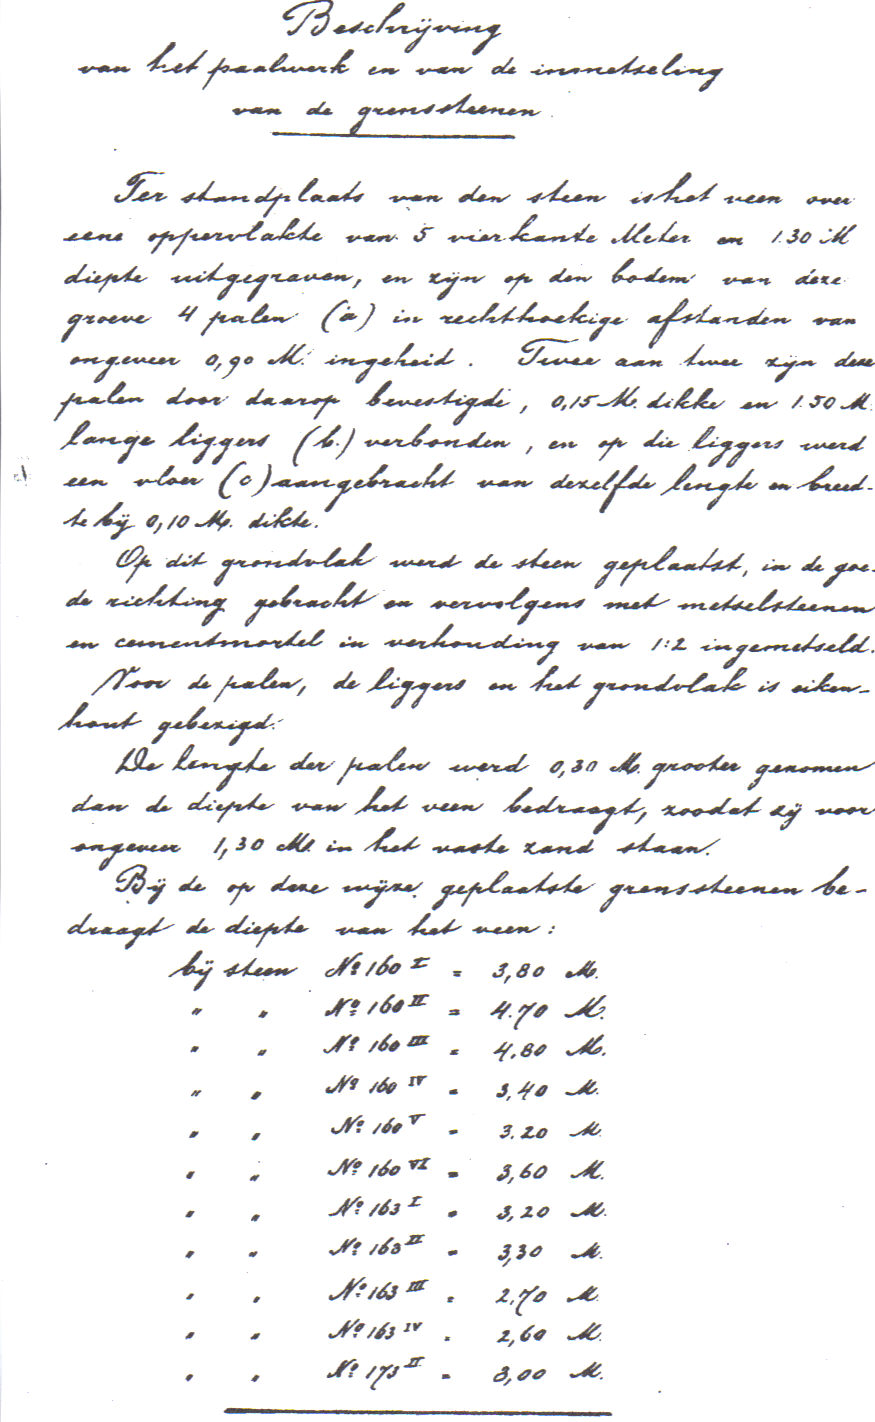 Beschrijving
van het paalwerk en van de inmetseling
van de grenssteenen.
Ter standplaats van den steen is het veen over
eene oppervlakte van 5 vierkante Meter en 1.30 M
diepte uitgegraven, en zijn op den bodem van deze
groeve 4 palen (a) in rechthoekige afstanden van
ongeveer 0,90 M. ingeheid. Twee aan twee zijn deze
palen door daarop bevestigde, 0,15 M. dikke en 1.50 M.
lange liggers (b.) verbonden, en op die liggers werd
een vloer (c) aangebracht van dezelfde lengte en breed-
te bij 0,10 M. dikte.
Op dit grondvlak werd de steen geplaatst, in de goe-
de richting gebracht en vervolgens met metselsteenen
en cementmortel in verhouding van 1:2 ingemetseld.
Voor de palen, de liggers en het grondvlak is eiken-
hout gebezigd.
De lengte der palen werd 0,30 M. grooter genomen
dan de diepte van het veen bedraagt, zoodat zij voor
ongeveer 1,30 M. in het vaste zand staan.
Bij de op deze wijze geplaatste grenssteenen be-
draagt de diepte van het veen:
bij steen No 160 I = 3,80 M.
" " No 160 II = 4.70 M.
" " No 160 III = 4,80 M.
" " No 160 IV = 3,40 M.
" " No 160 V = 3.20 M
" " No 160 VI = 3,60 M.
" " No 163 I = 3,20 M.
" " No 163 II = 3,30 M.
" " No 163 III = 2,70 M
" " No 163 IV = 2,60 M.
" " No 173 II = 3,00 M.